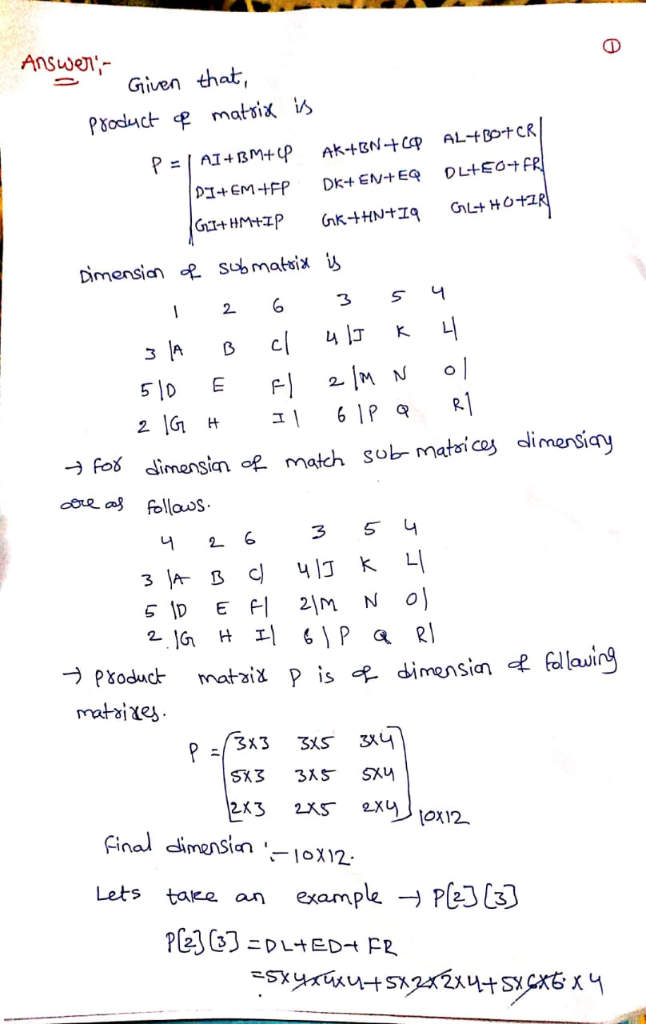 ①
Answer:-
Given that,
product of matrix is
P = | AI+BM+CP AK+BN+CQ AL+BO+CR |
| DI+EM+FP DK+EN+EQ DL+EO+FR |
| GI+HM+IP GK+HN+IQ GL+HO+IR |
Dimension of submatrix is
1 2 6 3 5 4
3 |A B C| 4 |J K L|
5 |D E F| 2 |M N O|
2 |G H I| 6 |P Q R|
→ For dimension of match sub-matrices dimensiony
are as follows.
4 2 6 3 5 4
3 |A B C| 4 |J K L|
5 |D E F| 2 |M N O|
2 |G H I| 6 |P Q R|
→ product matrix P is of dimension of following
matrixes.
P = [ 3X3 3X5 3X4
5X3 3X5 5X4
2X3 2X5 2X4 ] 10X12
Final dimension :- 10X12.
Lets take an example → P[2][3]
P[2][3] = DL+ED+FR
=5X4X4X4+5X2X2X4+5X6X6X4